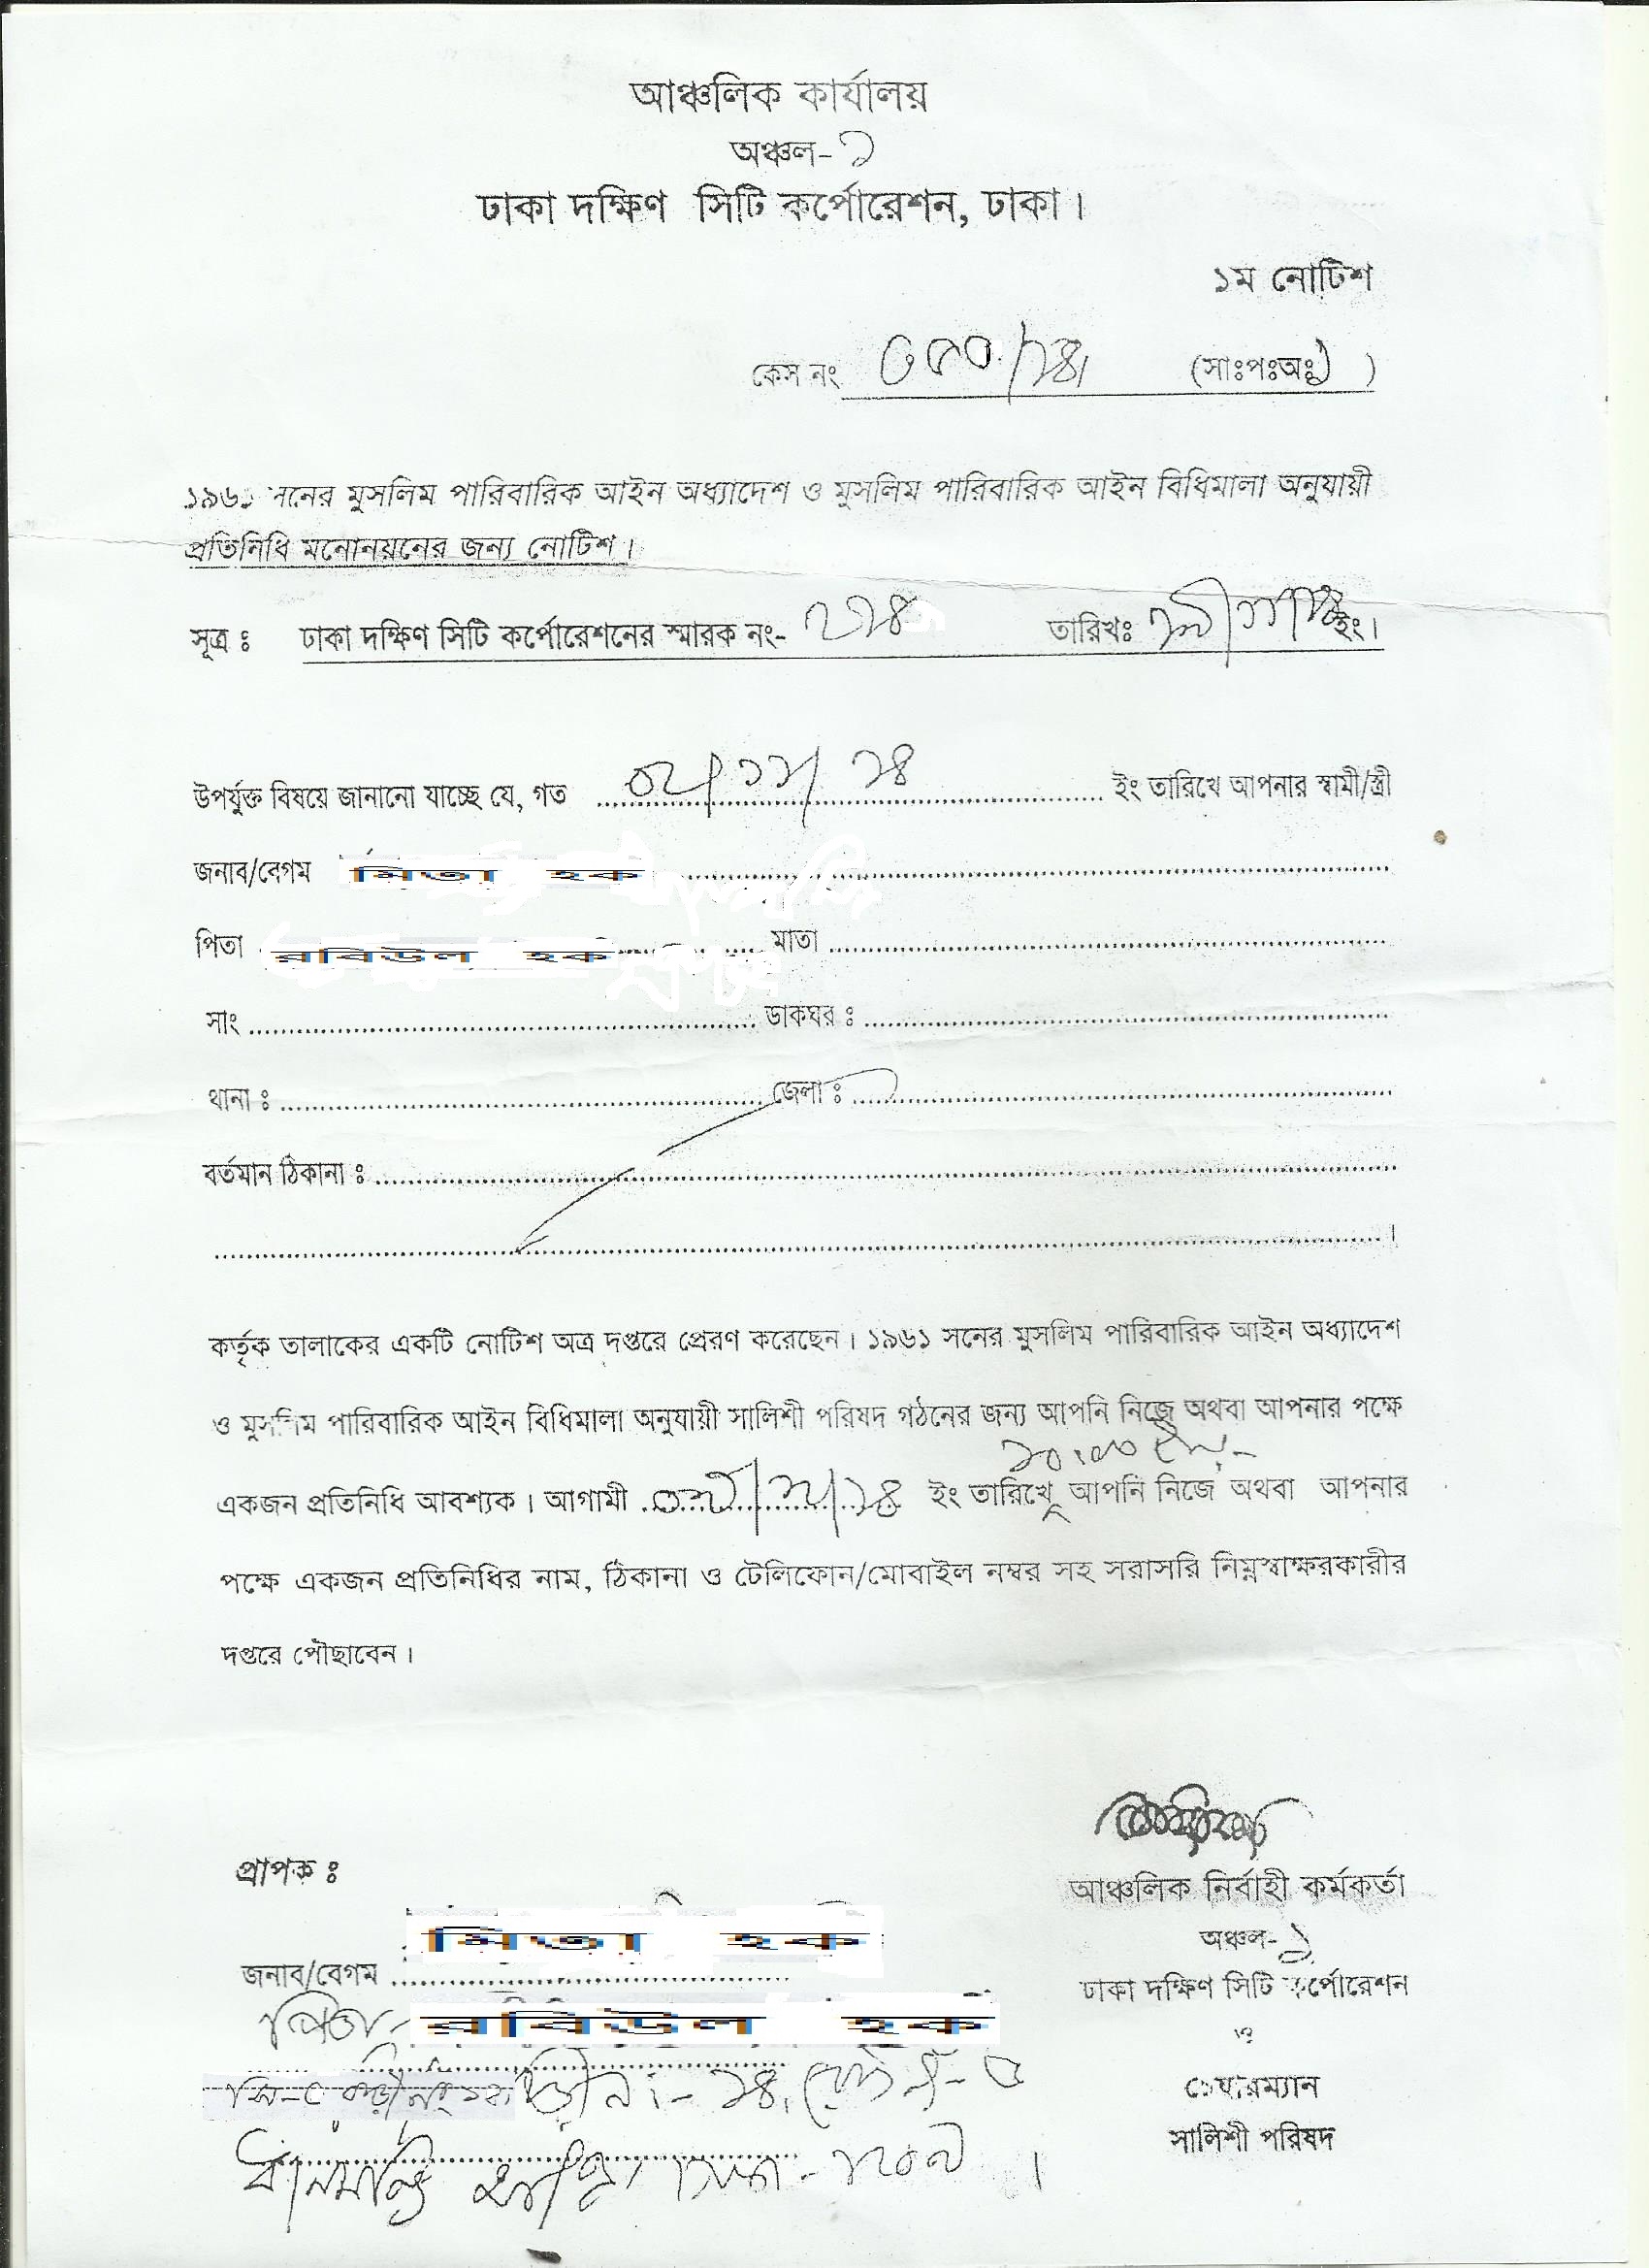 আঞ্চলিক কার্যালয়
অঞ্চল-১
ঢাকা দক্ষিণ সিটি কর্পোরেশন, ঢাকা।
১ম নোটিশ
কেস নং (সাঃপঃঅঃ১)
১৯৬১ সনের মুসলিম পারিবারিক আইন অধ্যাদেশ ও মুসলিম পারিবারিক আইন বিধিমালা অনুযায়ী
প্রতিনিধি মনোনয়নের জন্য নোটিশ।
সূত্র ঃ ঢাকা দক্ষিণ সিটি কর্পোরেশনের স্মারক নং- ২২৪ তারিখঃ ইং।
উপর্যুক্ত বিষয়ে জানানো যাচ্ছে যে, গত ০২/১১/১৪ ইং তারিখে আপনার স্বামী/স্ত্রী
জনাব/বেগম মিতা হক
পিতা রবিউল হক মাতা
সাং ডাকঘর ঃ
থানা ঃ জেলা ঃ
বর্তমান ঠিকানা ঃ
কর্তৃক তালাকের একটি নোটিশ অত্র দপ্তরে প্রেরণ করেছেন। ১৯৬১ সনের মুসলিম পারিবারিক আইন অধ্যাদেশ
ও মুসলিম পারিবারিক আইন বিধিমালা অনুযায়ী সালিশী পরিষদ গঠনের জন্য আপনি নিজে অথবা আপনার পক্ষে
একজন প্রতিনিধি আবশ্যক। আগামী ইং তারিখে আপনি নিজে অথবা আপনার
পক্ষে একজন প্রতিনিধির নাম, ঠিকানা ও টেলিফোন/মোবাইল নম্বর সহ সরাসরি নিম্নস্বাক্ষরকারীর
দপ্তরে পৌছাবেন।
প্রাপক ঃ
আঞ্চলিক নির্বাহী কর্মকর্তা
অঞ্চল-১
ঢাকা দক্ষিণ সিটি কর্পোরেশন
ও
চেয়ারম্যান
সালিশী পরিষদ
জনাব/বেগম মিতা হক
পিতা- রবিউল হক
ধানমন্ডি ঢাকা-১২০৯।